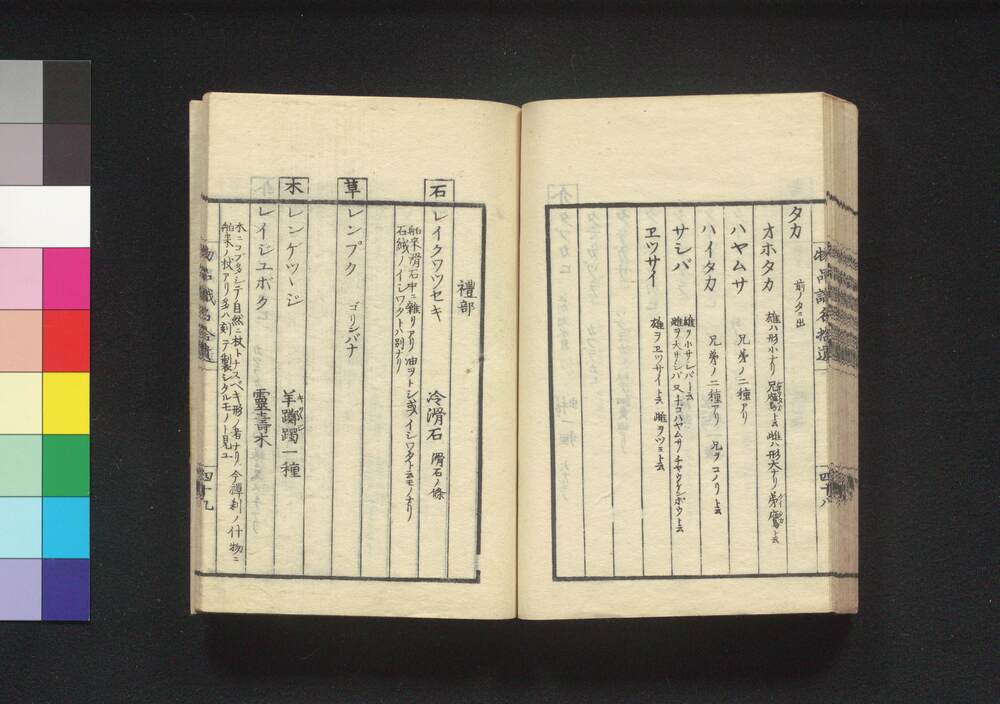 タカ 前ノタニ出
オホタカ 雄ハ形小ナリ兄鷹ト云雌ハ形大ナリ弟鷹ト云
ハヤムサ 兄弟ノ二種アリ
ハイタカ 兄弟ノ二種アリ 兄ヲコノリト云
サシバ 雄ヲ小サシバト云
雌ヲ大サシバ又
ヱツサイ 雄ヲヱツサイト云 雌ヲツミト云
物品識名拾遺
四十八
禮部
石 レイクワツセキ 冷滑石 滑石ノ條
舶来滑石中ニ雜リアリ油ヲトシ或ハイシワタト云モノナリ
石絨ノイシワタトハ別ナリ
草 レンプク ゴリンバナ
木 レンゲツヽジ 羊躑躅一種
レイジユボク 靈壽木
木ニコブ多シテ自然ニ杖トナスベキ形ノ者ナリ今譚ノ什物ニ
舶来ノ杖アリ多ハ刻テ製シタルモノト見ユ
物品識名拾遺
四十九